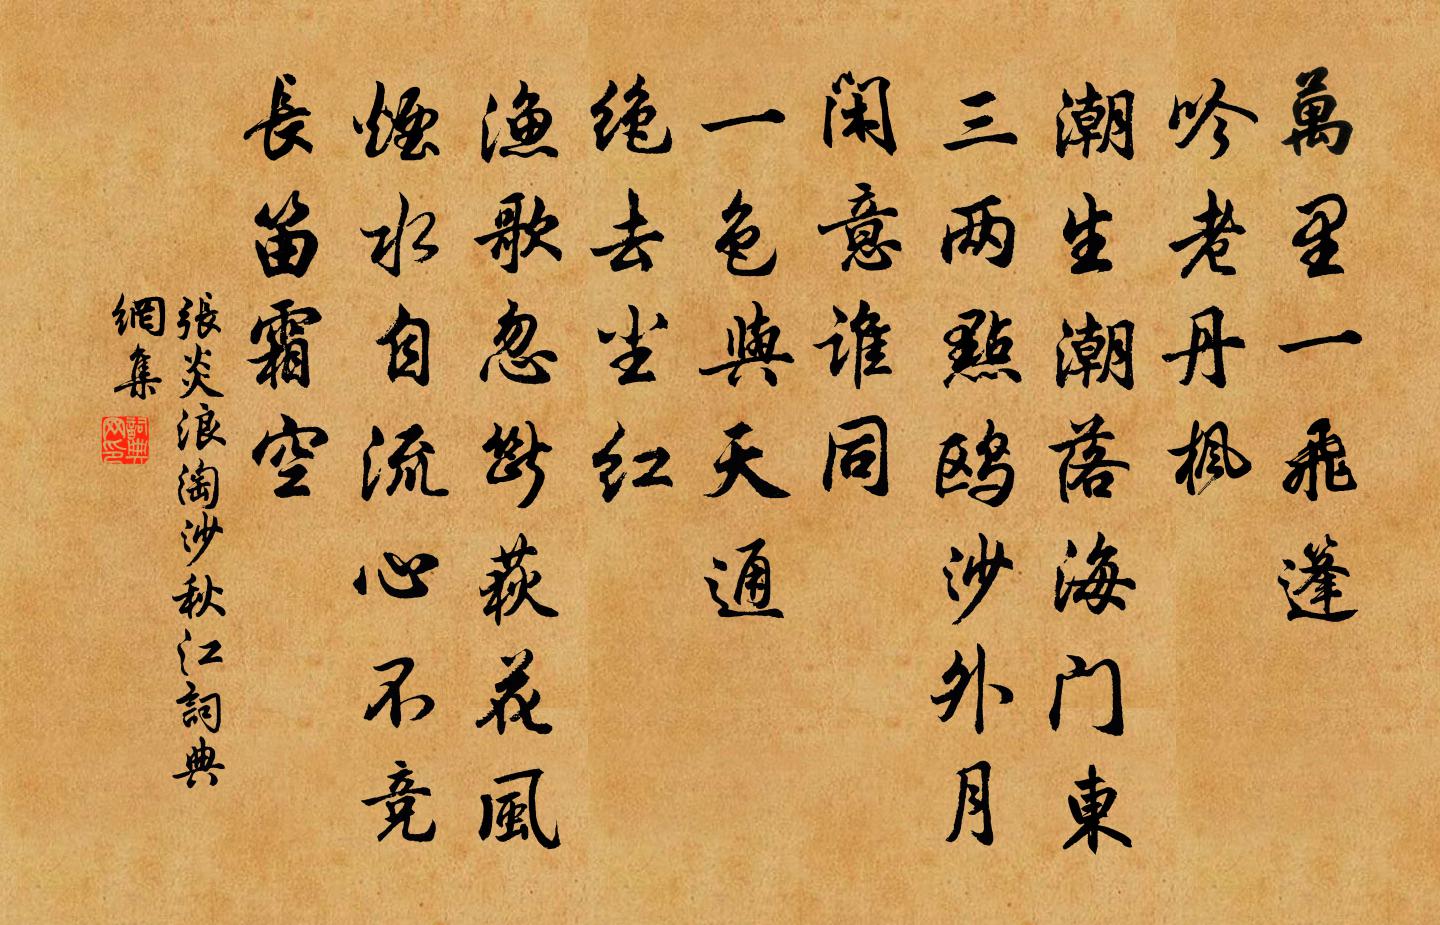 萬里一飛蓬
吟老丹楓
潮生潮落海门東
三两點鸥沙外月
閑意誰同
一色與天通
绝去尘红
漁歌忽斷荻花風
煙水自流心不竞
長笛霜空
張炎浪淘沙秋江詞典
網集
詞典
网印